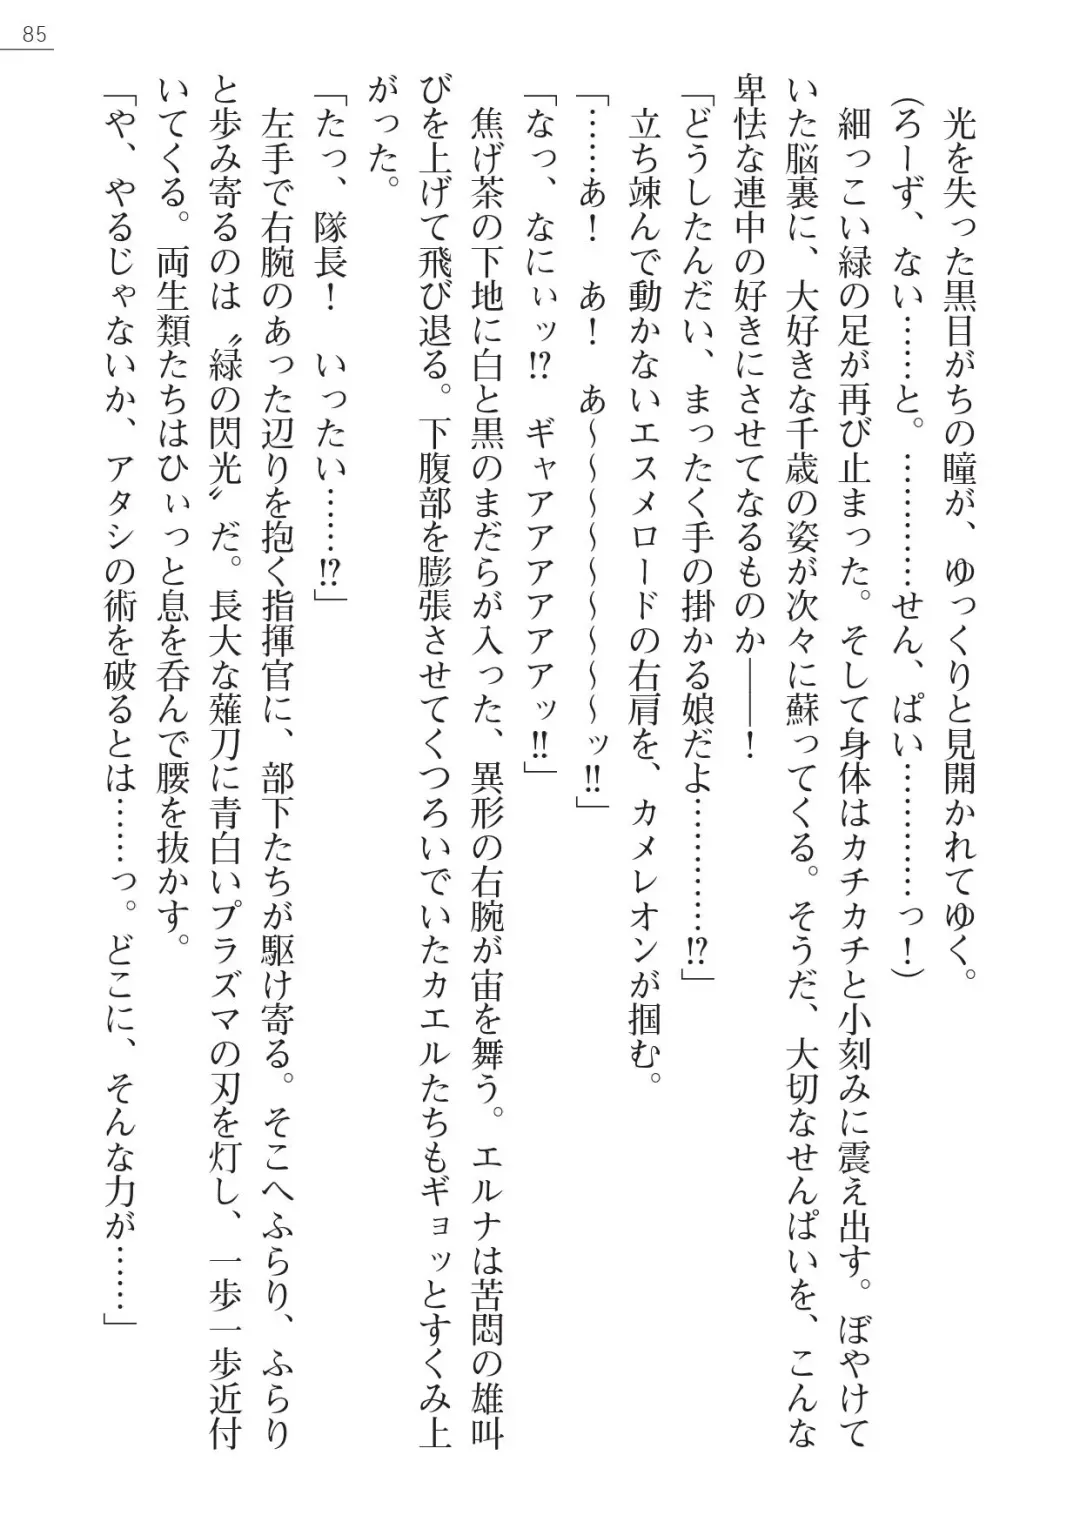 85
光を失った黒目がちの瞳が、ゆっくりと見開かれてゆく。
（ろーず、ない……と。…………せん、ぱい…………っ！）
細っこい緑の足が再び止まった。そして身体はカチカチと小刻みに震え出す。ぼやけて
いた脳裏に、大好きな千歳の姿が次々に蘇ってくる。そうだ、大切なせんぱいを、こんな
卑怯な連中の好きにさせてなるものか――！
「どうしたんだい、まったく手の掛かる娘だよ…………!?」
立ち竦んで動かないエスメロードの右肩を、カメレオンが掴む。
「……あ！　あ！　あ～～～～～～～～～ッ!!」
「なっ、なにぃッ!?　ギャアアアアアアッ!!」
焦げ茶の下地に白と黒のまだらが入った、異形の右腕が宙を舞う。エルナは苦悶の雄叫
びを上げて飛び退る。下腹部を膨張させてくつろいでいたカエルたちもギョッとすくみ上
がった。
「たっ、隊長！　いったい……!?」
左手で右腕のあった辺りを抱く指揮官に、部下たちが駆け寄る。そこへふらり、ふらり
と歩み寄るのは〝緑の閃光〟だ。長大な薙刀に青白いプラズマの刃を灯し、一歩一歩近付
いてくる。両生類たちはひぃっと息を呑んで腰を抜かす。
「や、やるじゃないか、アタシの術を破るとは……っ。どこに、そんな力が……」